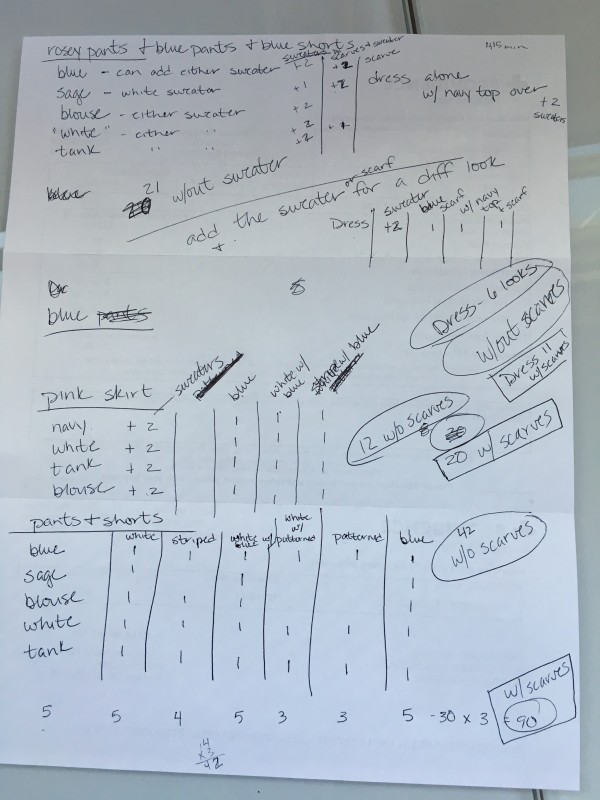 rosey pants + blue pants + blue shorts
45 min
sweaters scarves + sweater
blue - can add either sweater +2 +2 scarve
sage - white sweater +1 +2 dress alone
blouse - either sweater +2 w/ navy top over
"white" - either " +2 +2 sweaters
tank " " +2 +1
21 w/out sweater
add the sweater or scarf for a diff look
Dress sweater blue scarf w/ navy top + scarf
+2 1 1 1
8
blue pants
Dress - 6 looks
w/out scarves
Dress 11 w/ scarves
pink skirt sweaters blue white w/ blue
navy +2 1 1 1
white +2 1 1 1
tank +2 1 1 1
blouse +2 1 1 1
12 w/o scarves
20 w/ scarves
pants + shorts
white striped patterned white w/ patterned blue
blue 1 1 1 1 1 1
sage 1 1 1
blouse 1 1 1 1
white 1 1 1 1 1 1
tank 1 1 1 1 1 1
42 w/o scarves
5 5 4 5 3 3 5 -30 x 3 = 90
w/ scarves
14
x 3
42